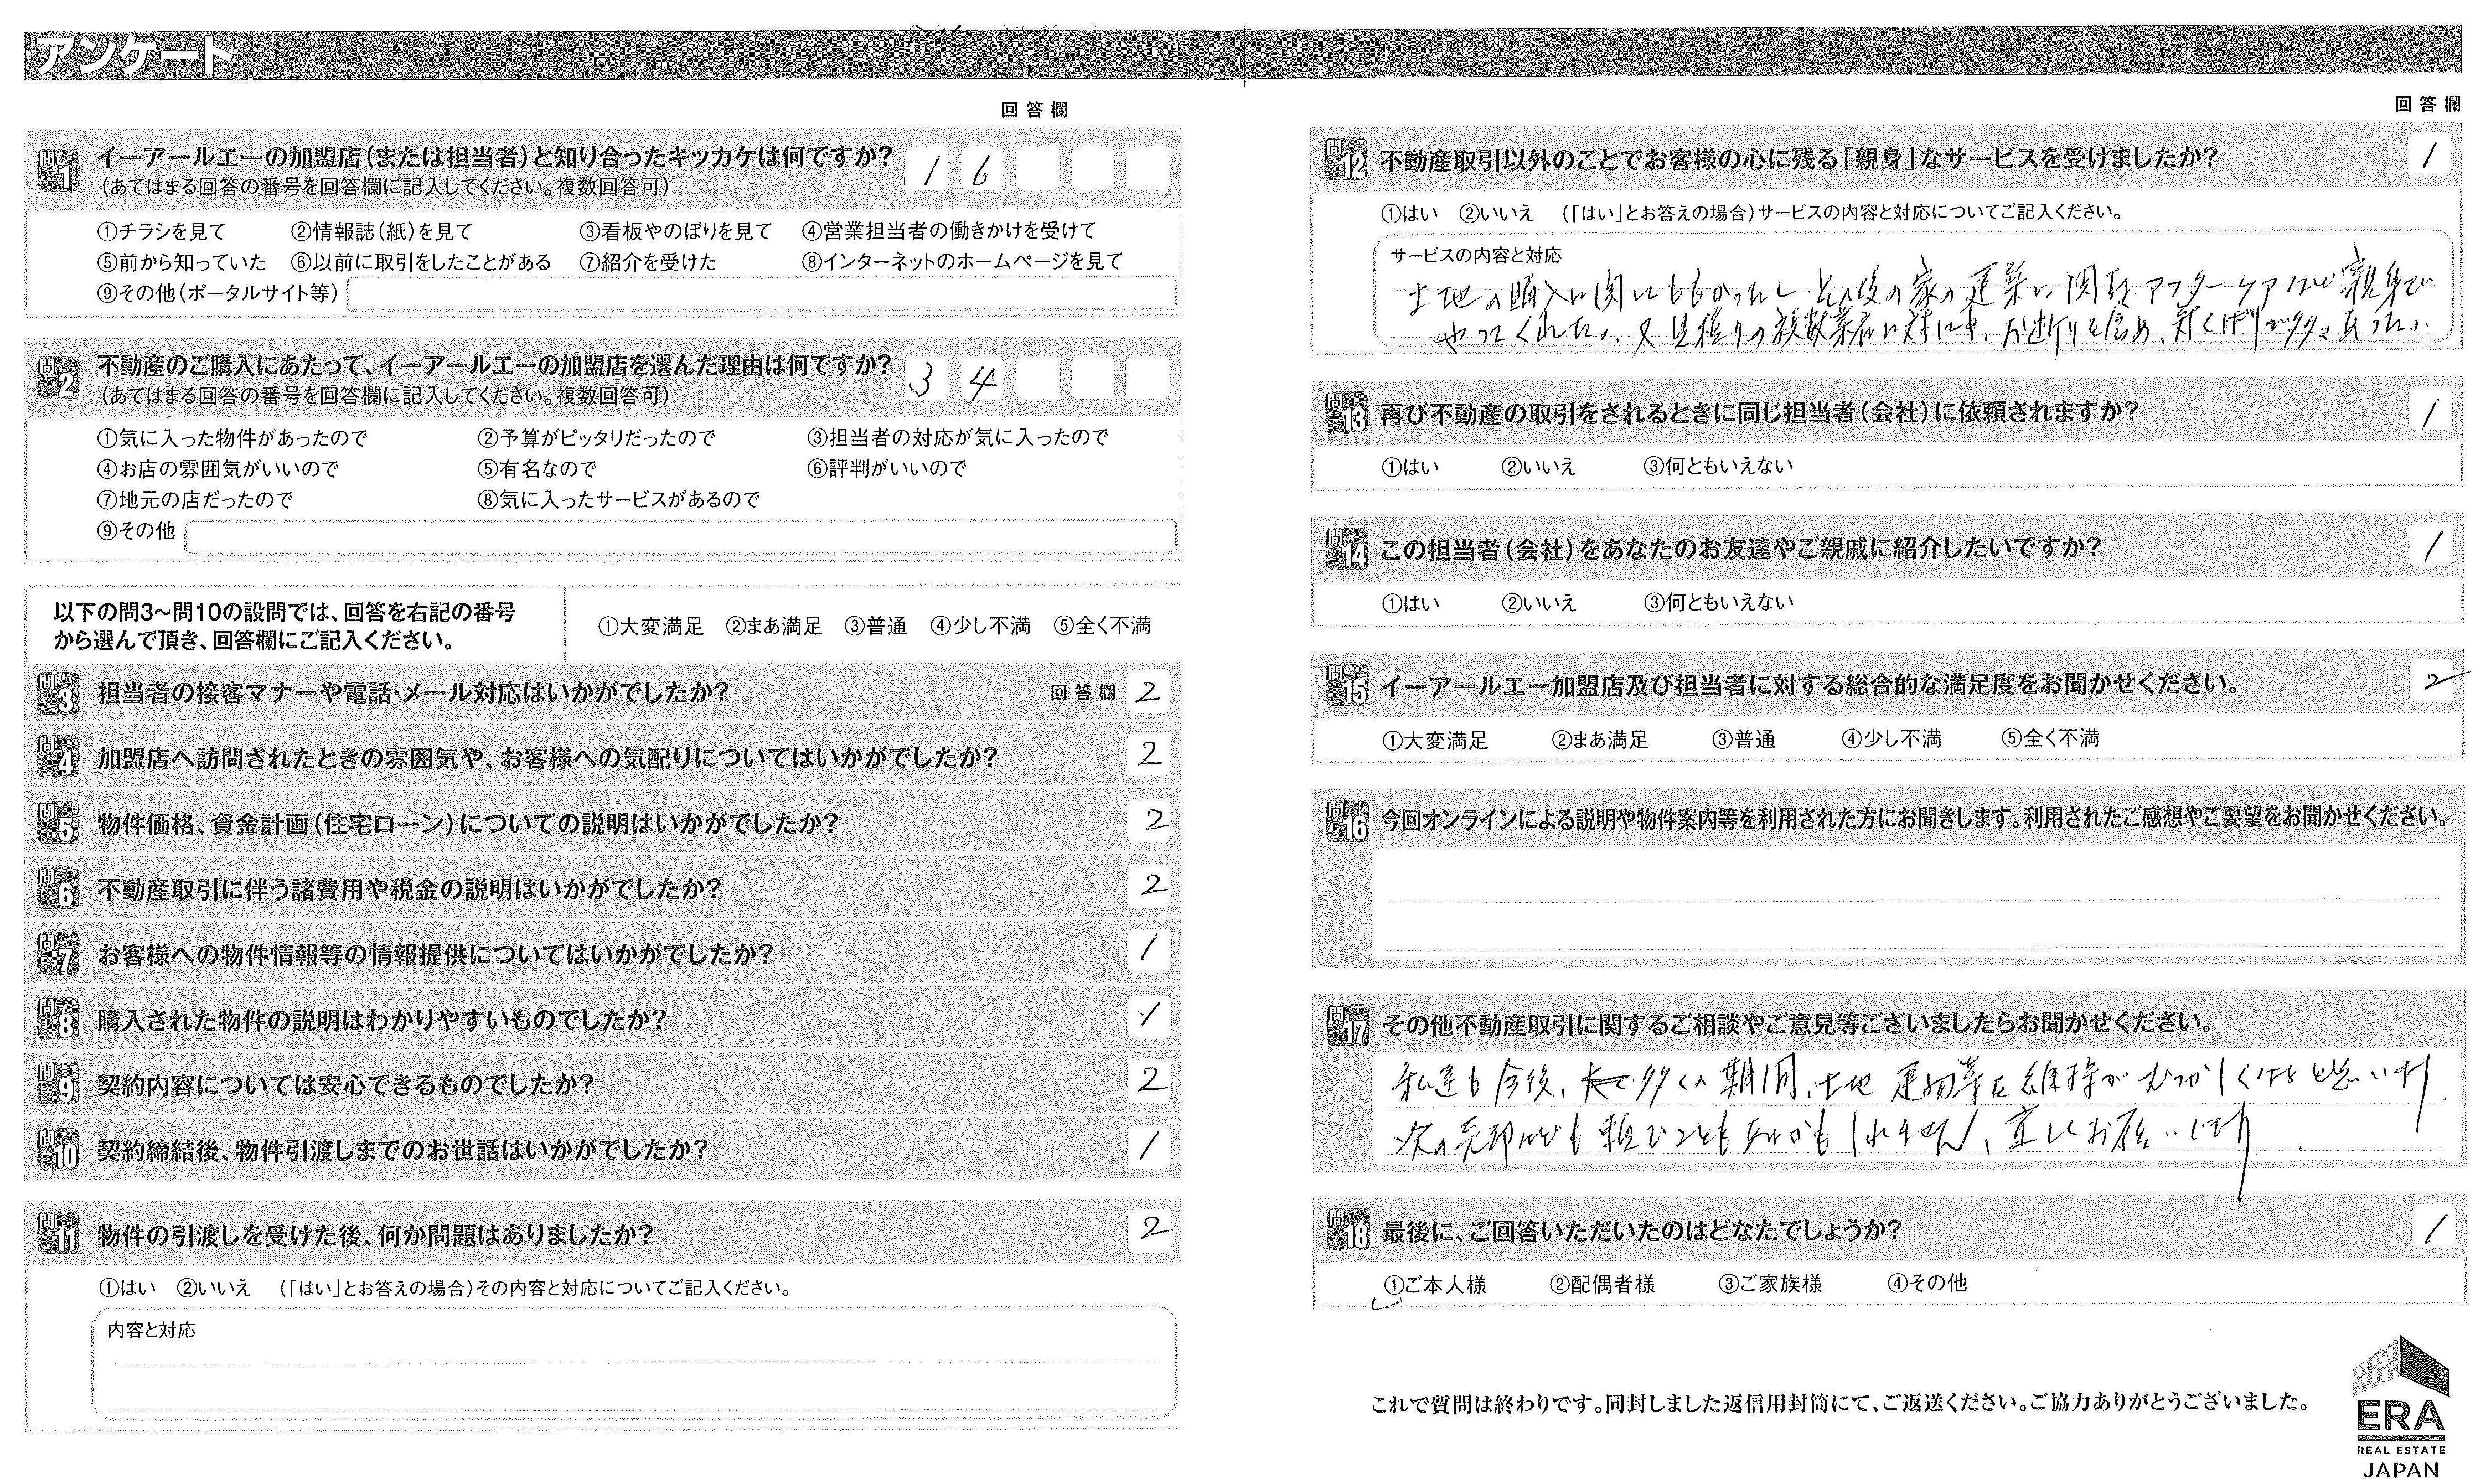 アンケート
回答欄
問1 イーアールエーの加盟店(または担当者)と知り合ったキッカケは何ですか? 1 6
(あてはまる回答の番号を回答欄に記入してください。複数回答可)
①チラシを見て ②情報誌(紙)を見て ③看板やのぼりを見て ④営業担当者の働きかけを受けて
⑤前から知っていた ⑥以前に取引をしたことがある ⑦紹介を受けた ⑧インターネットのホームページを見て
⑨その他(ポータルサイト等)
問2 不動産のご購入にあたって、イーアールエーの加盟店を選んだ理由は何ですか? 3 4
(あてはまる回答の番号を回答欄に記入してください。複数回答可)
①気に入った物件があったので ②予算がピッタリだったので ③担当者の対応が気に入ったので
④お店の雰囲気がいいので ⑤有名なので ⑥評判がいいので
⑦地元の店だったので ⑧気に入ったサービスがあるので
⑨その他
以下の問3～問10の設問では、回答を右記の番号
から選んで頂き、回答欄にご記入ください。
①大変満足 ②まあ満足 ③普通 ④少し不満 ⑤全く不満
問3 担当者の接客マナーや電話・メール対応はいかがでしたか? 回答欄 2
問4 加盟店へ訪問されたときの雰囲気や、お客様への気配りについてはいかがでしたか? 2
問5 物件価格、資金計画(住宅ローン)についての説明はいかがでしたか? 2
問6 不動産取引に伴う諸費用や税金の説明はいかがでしたか? 2
問7 お客様への物件情報等の情報提供についてはいかがでしたか? 1
問8 購入された物件の説明はわかりやすいものでしたか? 1
問9 契約内容については安心できるものでしたか? 2
問10 契約締結後、物件引渡しまでのお世話はいかがでしたか? 1
問11 物件の引渡しを受けた後、何か問題はありましたか? 2
①はい ②いいえ (「はい」とお答えの場合)その内容と対応についてご記入ください。
内容と対応
回答欄
問12 不動産取引以外のことでお客様の心に残る「親身」なサービスを受けましたか? 1
①はい ②いいえ (「はい」とお答えの場合)サービスの内容と対応についてご記入ください。
サービスの内容と対応
土地の購入に関しても 後の家の建築に関 アフターケアなど親身で
やってくれた。又見積りの複数業者に対しても、お断りを含め、気くばりが多々あった。
問13 再び不動産の取引をされるときに同じ担当者(会社)に依頼されますか? 1
①はい ②いいえ ③何ともいえない
問14 この担当者(会社)をあなたのお友達やご親戚に紹介したいですか? 1
①はい ②いいえ ③何ともいえない
問15 イーアールエー加盟店及び担当者に対する総合的な満足度をお聞かせください。 2
①大変満足 ②まあ満足 ③普通 ④少し不満 ⑤全く不満
問16 今回オンラインによる説明や物件案内等を利用された方にお聞きします。利用されたご感想やご要望をお聞かせください。
問17 その他不動産取引に関するご相談やご意見等ございましたらお聞かせください。
私達も今後、多くの期間、土地 建物等を維持がむつかしくなると思います。
次の売却なども頼むこともあるかもしれません、宜しくお願いします。
問18 最後に、ご回答いただいたのはどなたでしょうか? 1
①ご本人様 ②配偶者様 ③ご家族様 ④その他
これで質問は終わりです。同封しました返信用封筒にて、ご返送ください。ご協力ありがとうございました。
ERA
REAL ESTATE
JAPAN